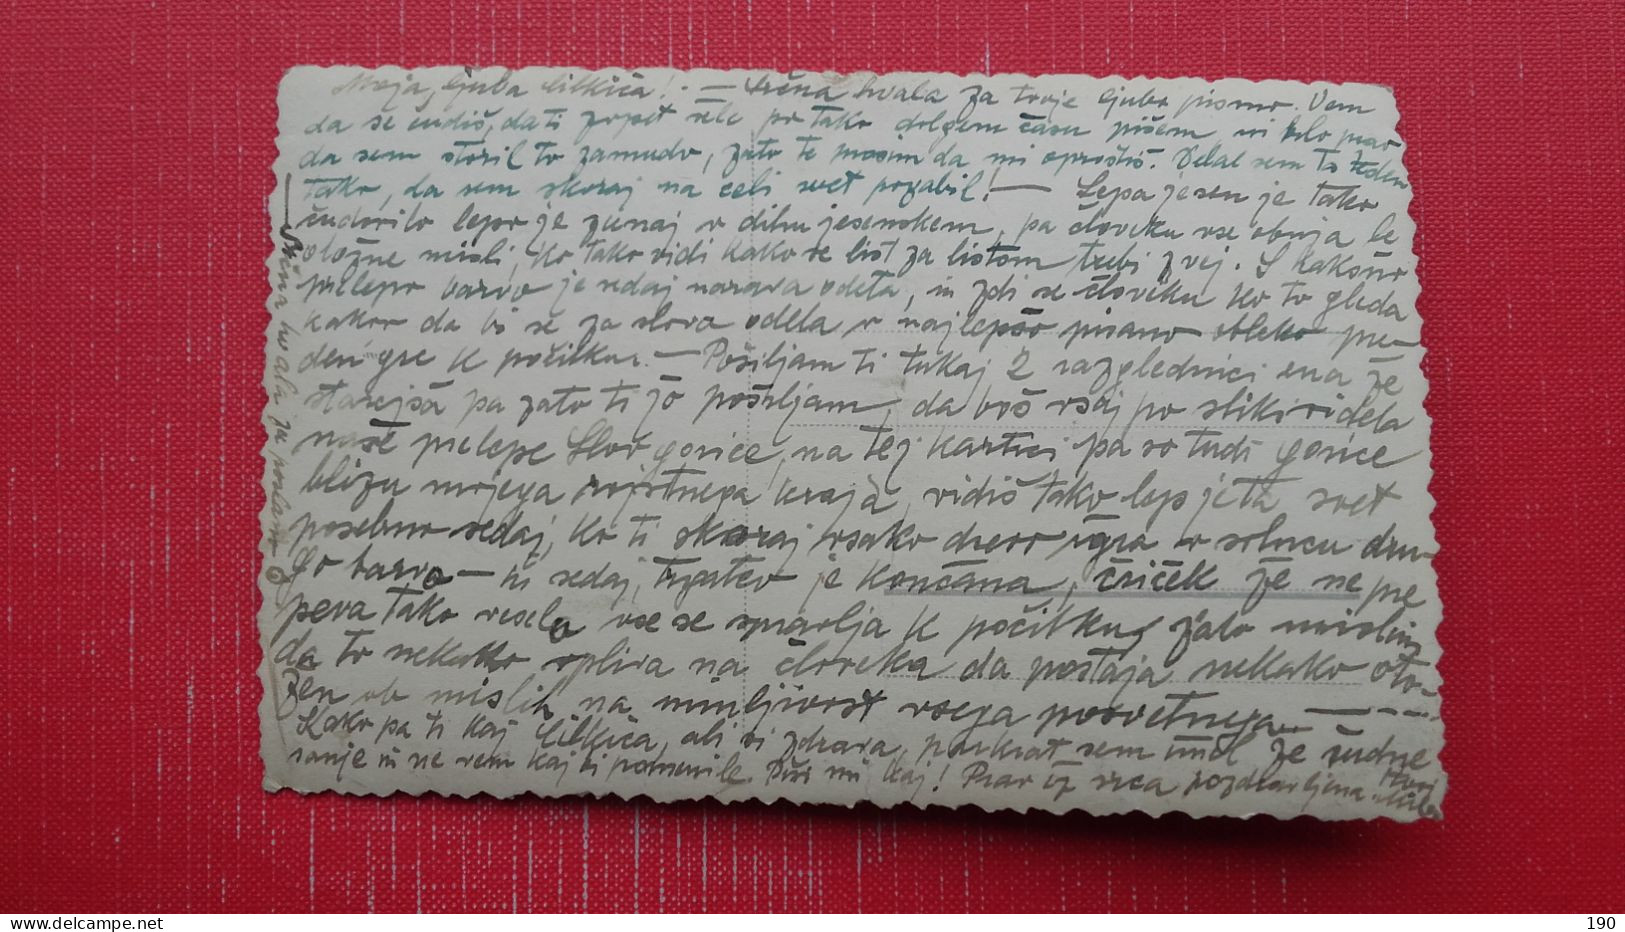 Moja, ljuba Cilkica! - Srčna hvala za tvoje ljubo pismo. Vem
da se čudiš, da ti zopet šele po tako dolgem času pišem, ni bilo prav
da sem storil to zamudo, zato te prosim da mi oprostiš. Delal sem ta teden
tako, da sem skoraj na celi svet pozabil! — Lepa jesen je tako
čudovito lepo je zunaj v dihu jesenskem, pa človeku vse obuja le
otožne misli, ko tako vidi kako se list za listom trebi z vej. S kakšno
prelepo barvo je sedaj narava odeta, in zdi se človeku ko to gleda
kakor da bi se za slovo odela v najlepšo pisano obleko pre-
den gre k počitku. — Pošiljam ti tukaj 2 razglednici ena že
starejša pa zato ti jo pošiljam, da boš vsaj po sliki videla
naše prelepe Slov gorice, na tej kartici pa so tudi gorice
blizu mojega rojstnega kraja, vidiš tako lep je ta svet
posebno sedaj, ko ti skoraj vsako drevo igra v solncu dru-
go barvo — ni sedaj, trgatev je končana, čriček že ne pre
peva tako veselo vse se spravlja k počitku, zato mislim
da to nekako vpliva na človeka da postaja nekako oto-
žen ob mislih na minljivost vsega posvetnega. —
Kako pa ti kaj Cilkica, ali si zdrava, parkrat sem imel že čudne
sanje in ne vem kaj bi pomenile. Piši mi kaj! Prav iz srca pozdravljena
tvoj
Srčna hvala za poslano
190